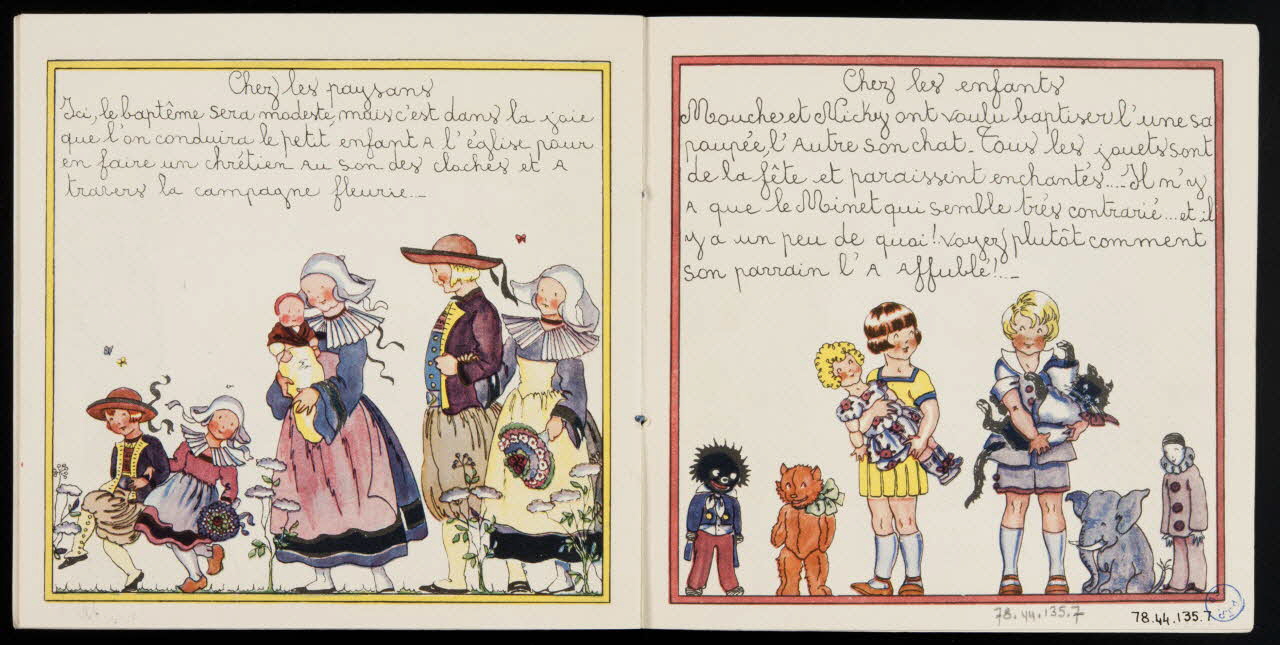 Chez les paysans
Ici, le baptême sera modeste, mais c'est dans la joie
que l'on conduira le petit enfant A l'église pour
en faire un chrétien Au son des cloches et A
travers la campagne fleurie...
Chez les enfants
Mouche et Micky ont voulu baptiser l'une sa
poupée, l'Autre son chat. Tous les jouets sont
de la fête et paraissent enchantés.... Il n'y
A que le Minet qui semble très contrarié... et il
y A un peu de quoi! Voyez plutôt comment
son parrain l'A Affublé!...
78.44.135.7
78.44.135.7